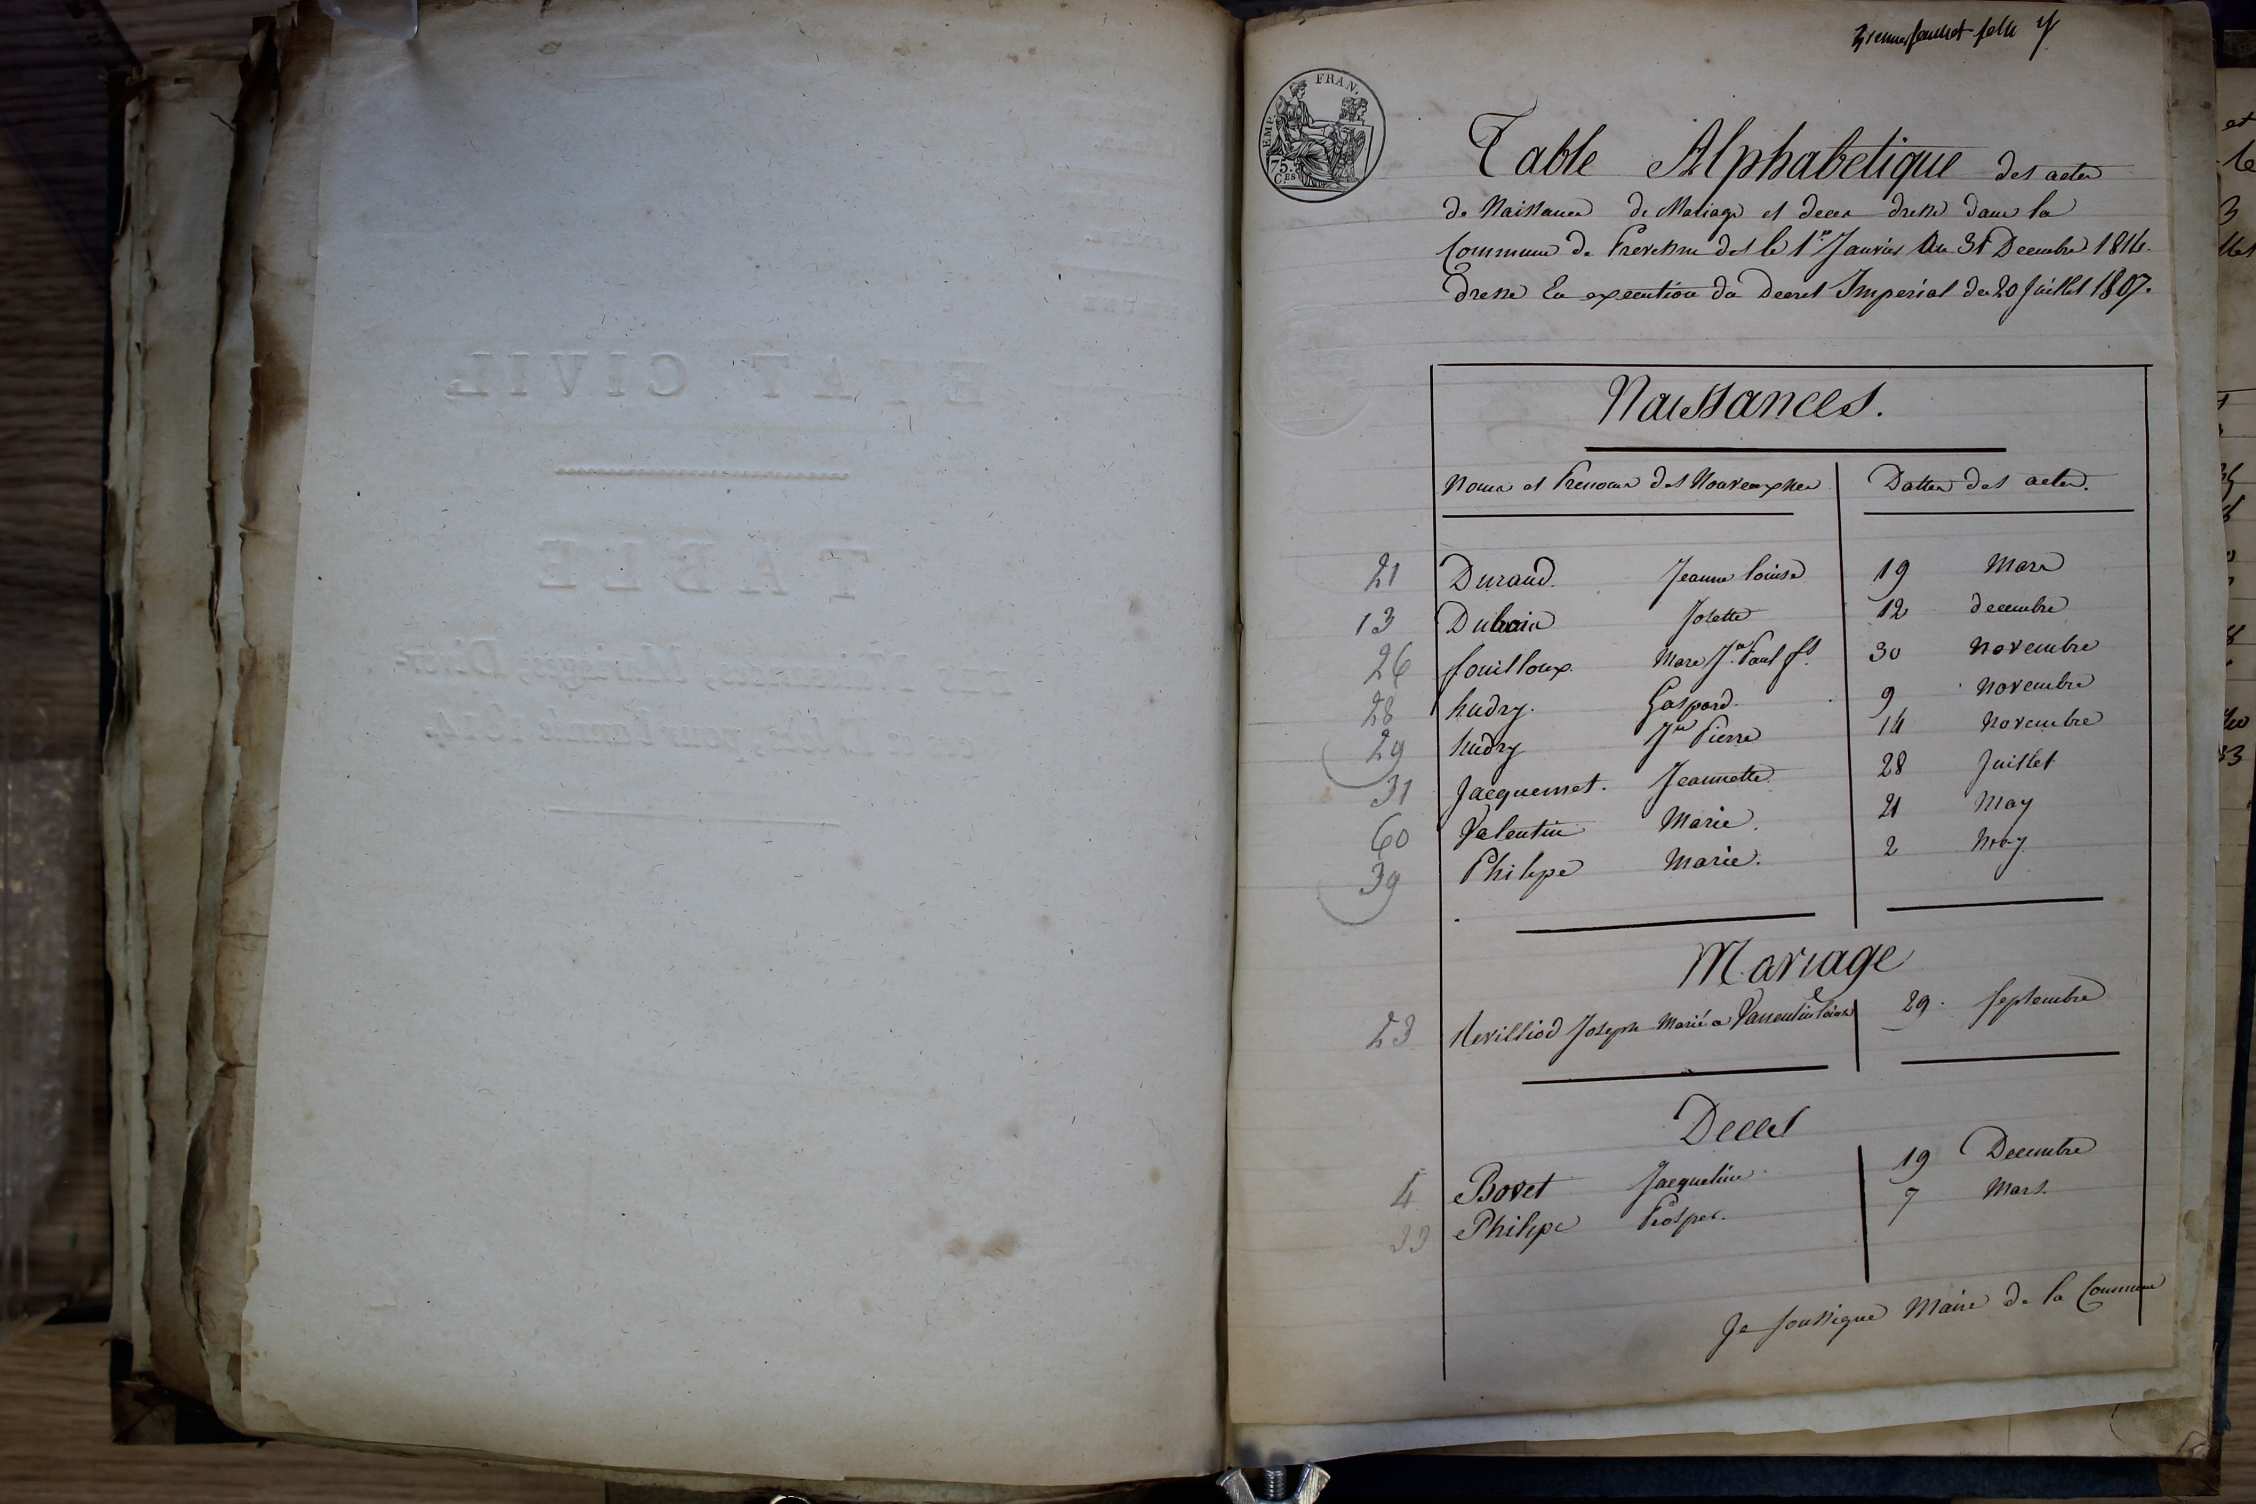 ETAT CIVIL
TABLE
Des Naissances, Mariages, Divor-
ces et Décès, pour l'année 1814.
EMP. FRAN.
75.
C.ES
Table Alphabetique des actes
de Naissances de Mariage et deces dresse dans la
Commune de dès le 1er Janvier Au 31 Decembre 1814.
dresse En execution du Decret Imperial du 20 Juillet 1807.
Naissances.
Noms et Prenoms des Nouveaux nes Dattes des actes.
21 Durand. Jeanne Louise 19 Mars
13 Dubois Josette 12 decembre
26 fouilloux. Marc Jn Paul fs. 30 Novembre
28 hudry. Gaspard. 9 Novembre
29 hudry Jn Pierre 14 Novembre
31 Jacquemet. Jeannette. 28 Juillet
60 Valentin Marie. 21 May
39 Philipe Marie. 2 May
Mariage
23 Revilliod Joseph Marié a 29. Septembre
Deces
4 Bovet Jacqueline. 19 Decembre
33 Philipe Prosper. 7 Mars.
Je soussigne Maire de la Commune